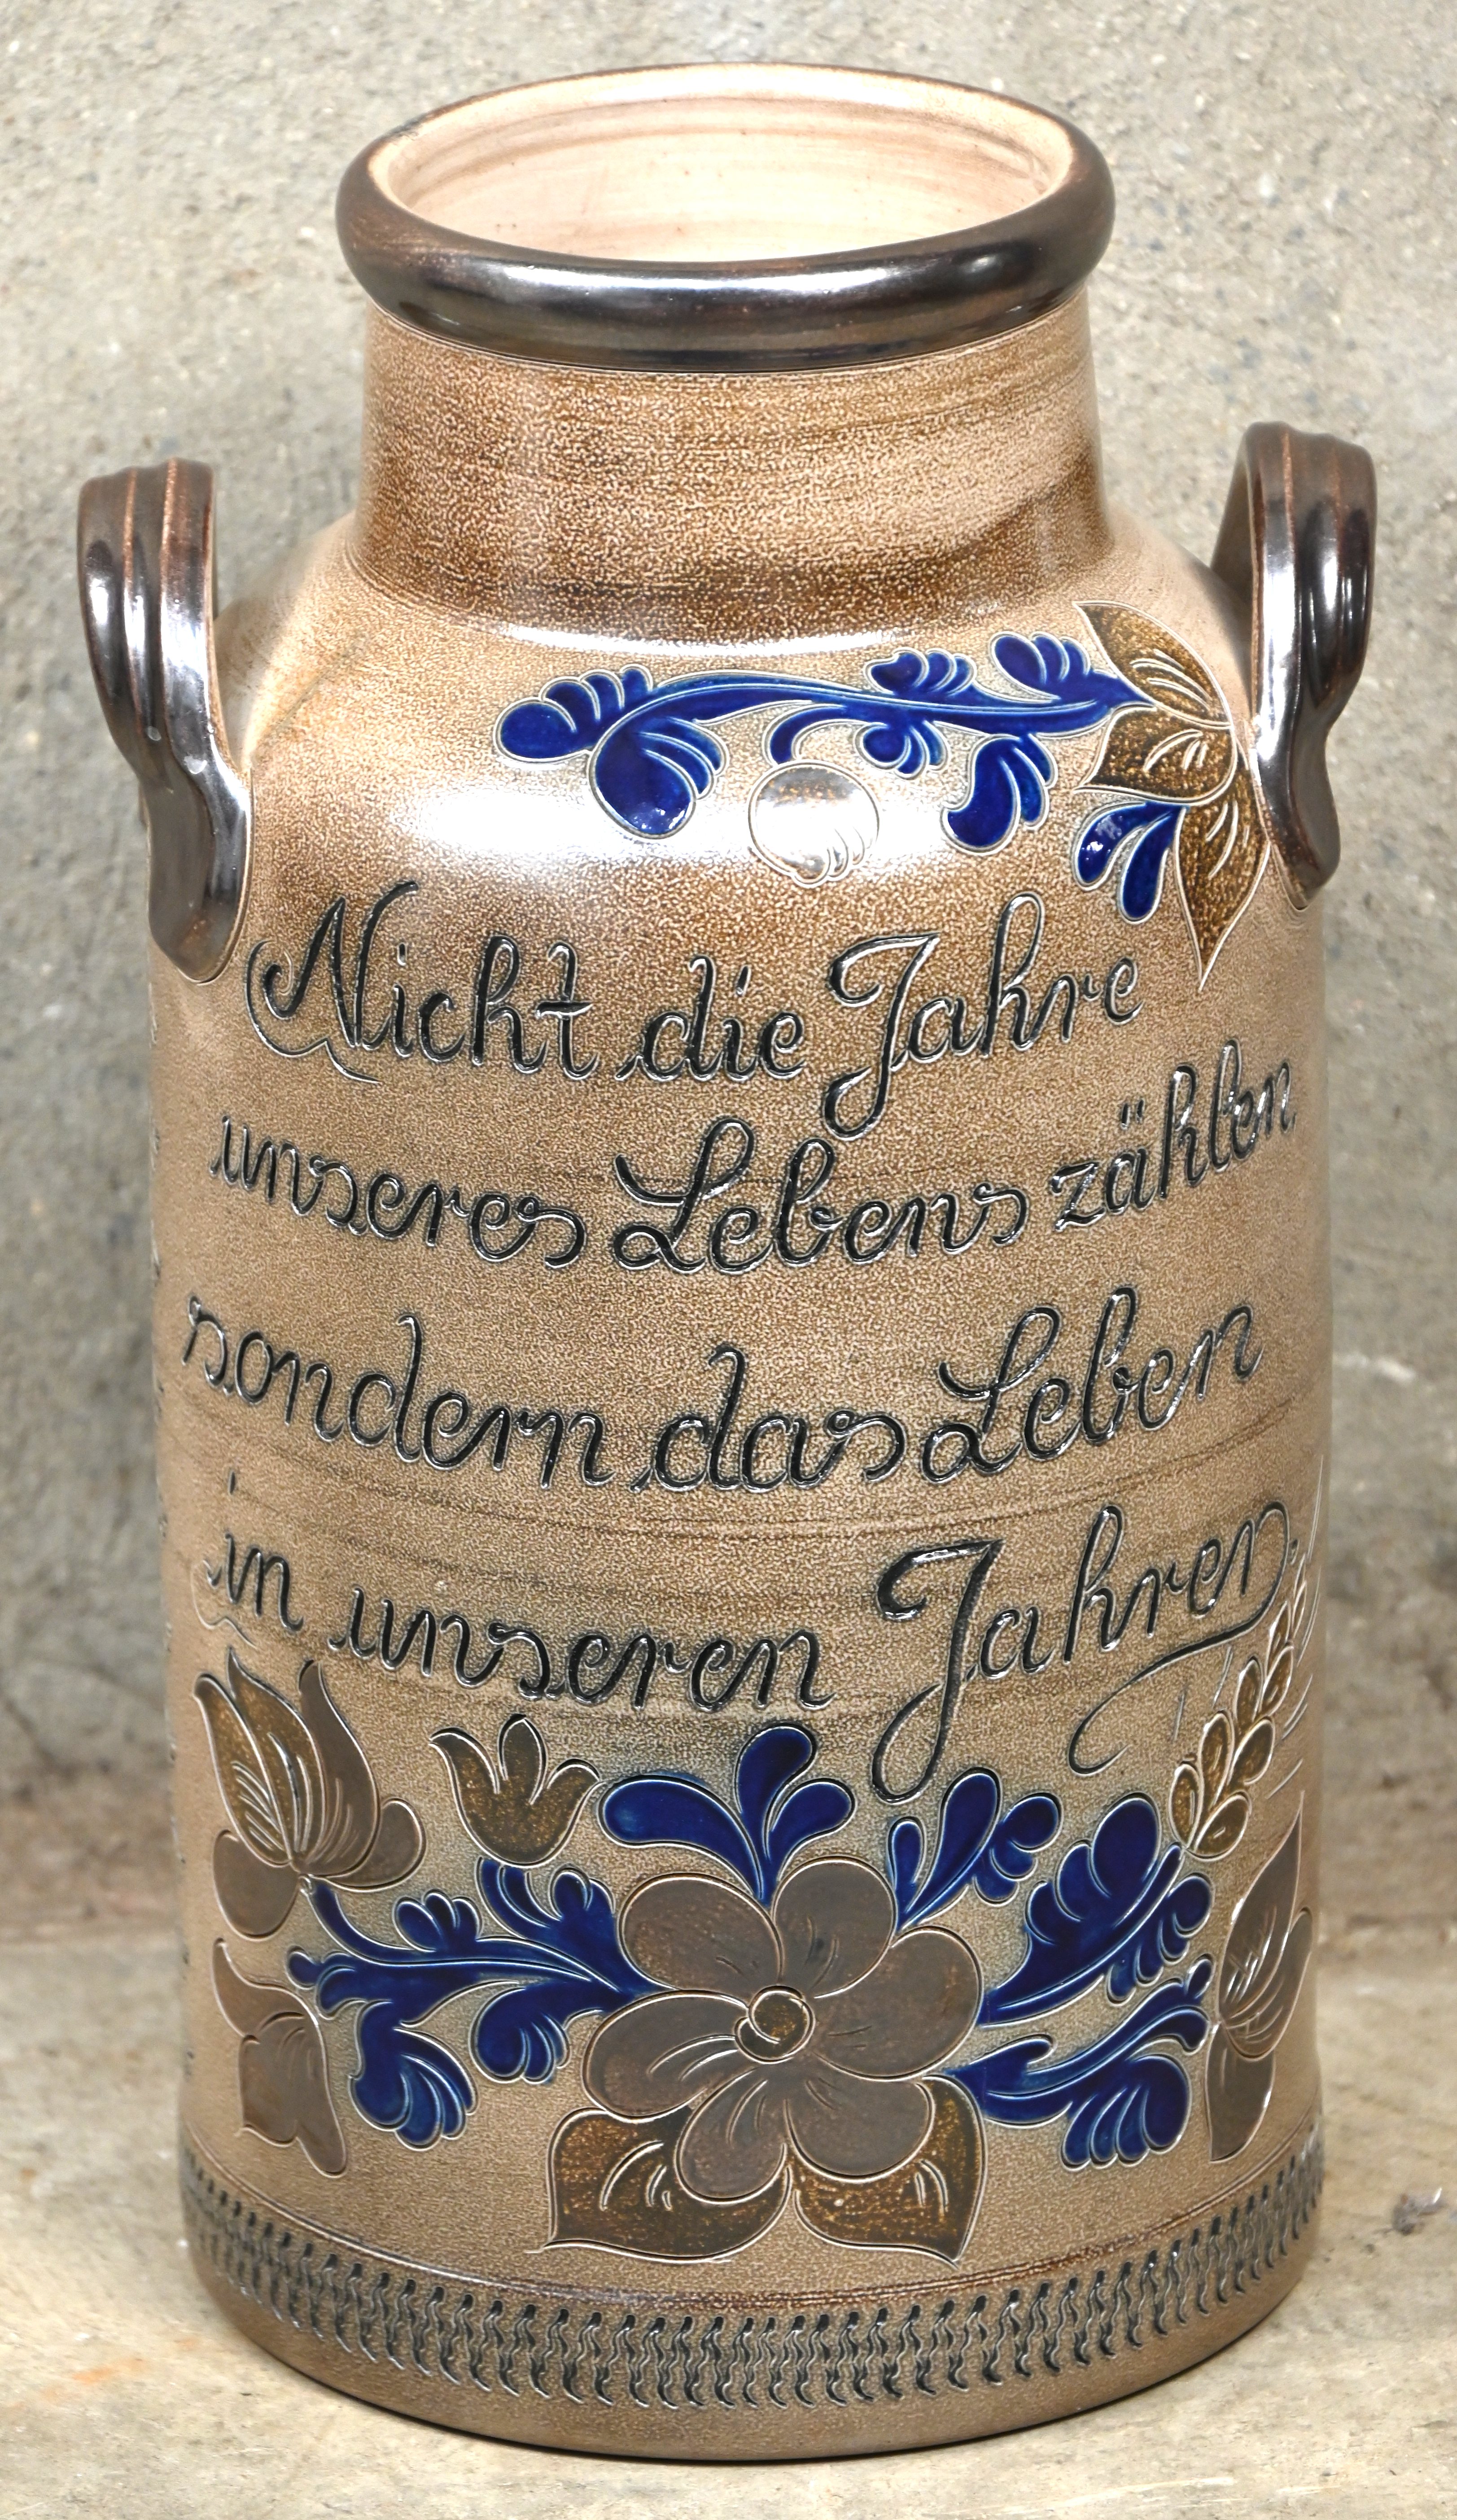 Nicht die Jahre
unseres Lebens zählen
sondern das Leben
in unseren Jahren